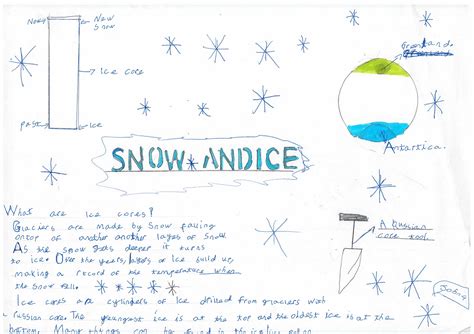 New
Snow
Ice core
past
Ice
Greenland
Antartica.
SNOW ANDICE
A Russian
core tool
What are Ice cores?
Glaciers are made by Snow falling
ontop of another another layes of Snow.
As the snow gets deeper it turns
to ice. Over the years, layers of Ice build up
making a record of the temperature when
the Snow fell.
Ice cores are cylinders of Ice drilled from glaciers with
a russian core. The youngest ice is at the top and the oldest ice is at the
bottom. Many things can be found in the ice